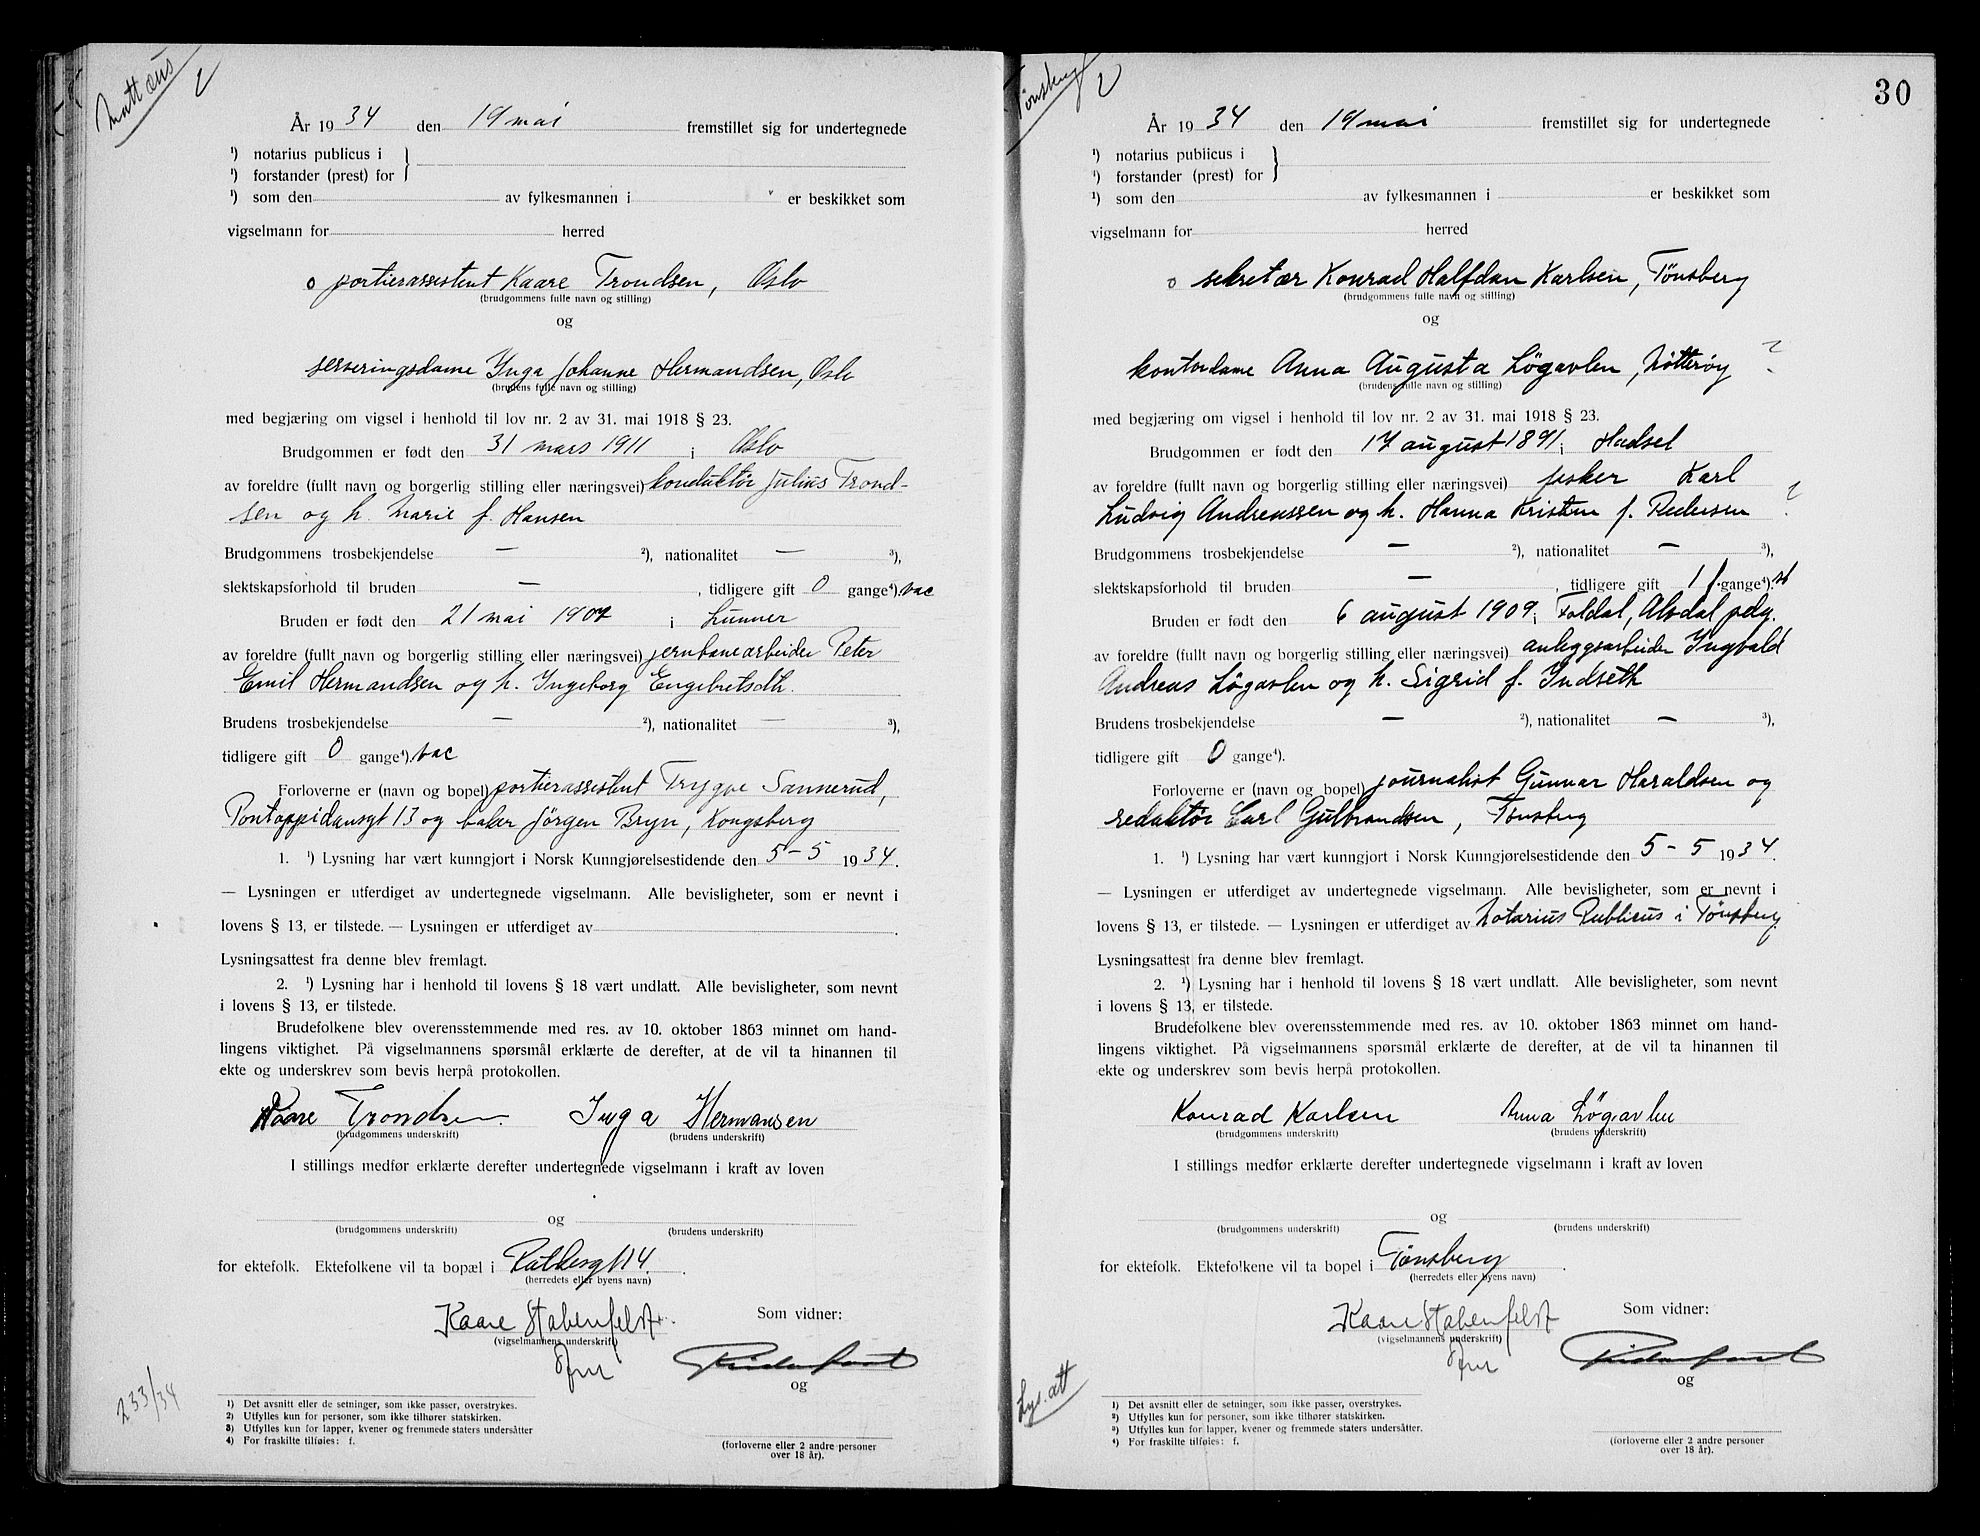 Mattæus
År 1934 den 19 mai fremstillet sig for undertegnede
¹) notarius publicus i
¹) forstander (prest) for
¹) som den av fylkesmannen i er beskikket som
vigselmann for herred
o portierassistent Kaare Trondsen, Oslo
(brudgommens fulle navn og stilling)
og
serveringsdame Inga Johanne Hermandsen, Oslo
(brudens fulle navn og stilling)
med begjæring om vigsel i henhold til lov nr. 2 av 31. mai 1918 § 23.
Brudgommen er født den 31 mars 1911 i Oslo
av foreldre (fullt navn og borgerlig stilling eller næringsvei) konduktør Julius Trond-
sen og h. Marie f. Hansen
Brudgommens trosbekjendelse — ²), nationalitet — ³),
slektskapsforhold til bruden — , tidligere gift 0 gange⁴). vac
Bruden er født den 21 mai 1907 i Lunner
av foreldre (fullt navn og borgerlig stilling eller næringsvei) jernbanearbeider Peter
Emil Hermandsen og h. Ingeborg Engebretsdtr.
Brudens trosbekjendelse — ²), nationalitet — ³),
tidligere gift 0 gange⁴). vac
Forloverne er (navn og bopel) portierassistent Trygve Sannerud,
Pontoppidansgt 13 og baker Jörgen Bryn, Kongsberg
1. ¹) Lysning har vært kunngjort i Norsk Kunngjørelsestidende den 5-5 1934.
— Lysningen er utferdiget av undertegnede vigselmann. Alle bevisligheter, som er nevnt i
lovens § 13, er tilstede. — Lysningen er utferdiget av .
Lysningsattest fra denne blev fremlagt.
2. ¹) Lysning har i henhold til lovens § 18 vært undlatt. Alle bevisligheter, som nevnt
i lovens § 13, er tilstede.
Brudefolkene blev overensstemmende med res. av 10. oktober 1863 minnet om hand-
lingens viktighet. På vigselmannens spørsmål erklærte de derefter, at de vil ta hinannen til
ekte og underskrev som bevis herpå protokollen.
Kaare Trondsen. Inga Hermansen
(brudgommens underskrift) (brudens underskrift)
I stillings medfør erklærte derefter undertegnede vigselmann i kraft av loven
og
(brudgommens underskrift) (brudens underskrift)
for ektefolk. Ektefolkene vil ta bopæl i 14.
(herredets eller byens navn)
Kaare Stabenfeldt Som vidner:
(vigselmannens underskrift)
og
233/34
1) Det avsnitt eller de setninger, som ikke passer, overstrykes.
2) Utfylles kun for personer, som ikke tilhører statskirken.
3) Utfylles kun for lapper, kvener og fremmede staters undersåtter
4) For fraskilte tilføies: f.
(forloverne eller 2 andre personer
over 18 år).
Tønsberg
30
År 1934 den 19 mai fremstillet sig for undertegnede
¹) notarius publicus i
¹) forstander (prest) for
¹) som den av fylkesmannen i er beskikket som
vigselmann for herred
o sekretær Konrad Halfdan Karlsen, Tönsberg
(brudgommens fulle navn og stilling)
og
kontordame Anna Augusta Lögavlen, Nötteröy ?
(brudens fulle navn og stilling)
med begjæring om vigsel i henhold til lov nr. 2 av 31. mai 1918 § 23.
Brudgommen er født den 17 august 1891 i Hadsel
av foreldre (fullt navn og borgerlig stilling eller næringsvei) fisker Karl
Ludvig Andreassen og h. Hanna Kristine f. Pedersen ?
Brudgommens trosbekjendelse — ²), nationalitet — ³),
slektskapsforhold til bruden — , tidligere gift 1 f. gange⁴).
Bruden er født den 6 august 1909 i Foldal, Alvdal
av foreldre (fullt navn og borgerlig stilling eller næringsvei) anleggsarbeider Ingvald
Andreas Lögavlen og h. Sigrid f. Indseth
Brudens trosbekjendelse — ²), nationalitet — ³),
tidligere gift 0 gange⁴).
Forloverne er (navn og bopel) journalist Gunnar Haraldsen og
redaktör Carl Gulbrandsen, Tönsberg
1. ¹) Lysning har vært kunngjort i Norsk Kunngjørelsestidende den 5-5 1934.
— Lysningen er utferdiget av undertegnede vigselmann. Alle bevisligheter, som er nevnt i
lovens § 13, er tilstede. — Lysningen er utferdiget av Notarius Publicus i Tönsberg.
Lysningsattest fra denne blev fremlagt.
2. ¹) Lysning har i henhold til lovens § 18 vært undlatt. Alle bevisligheter, som nevnt
i lovens § 13, er tilstede.
Brudefolkene blev overensstemmende med res. av 10. oktober 1863 minnet om hand-
lingens viktighet. På vigselmannens spørsmål erklærte de derefter, at de vil ta hinannen til
ekte og underskrev som bevis herpå protokollen.
Konrad Karlsen Anna Lögavlen
(brudgommens underskrift) (brudens underskrift)
I stillings medfør erklærte derefter undertegnede vigselmann i kraft av loven
og
(brudgommens underskrift) (brudens underskrift)
for ektefolk. Ektefolkene vil ta bopel i Tønsberg.
(herredets eller byens navn)
Kaare Stabenfeldt Som vidner:
(vigselmannens underskrift)
og
Lys. att
¹) Det avsnitt eller de setninger, som ikke passer, overstrykes.
²) Utfylles kun for personer, som ikke tilhører statskirken.
³) Utfylles kun for lapper, kvener og fremmede staters undersåtter.
⁴) For fraskilte tilføies: f.
(forloverne eller 2 andre personer
over 18 år).